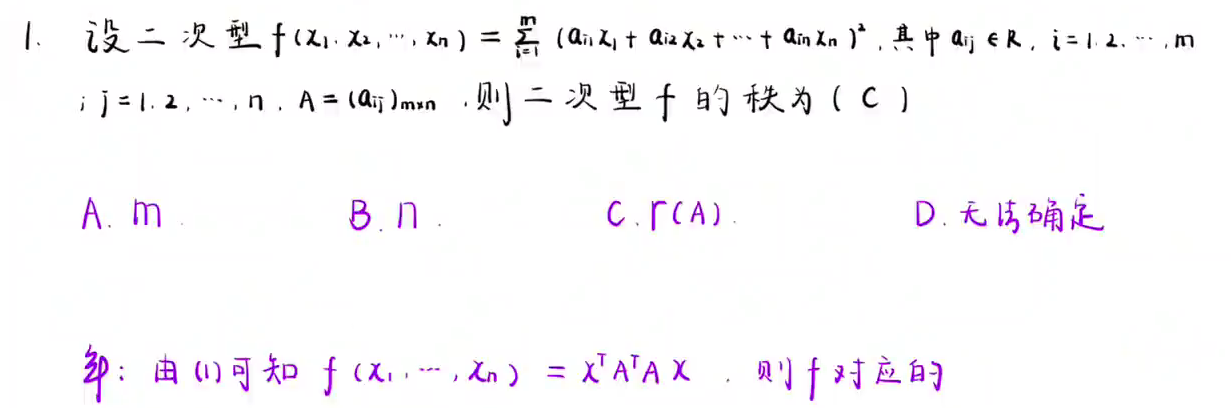 1. 设二次型 f(x₁, x₂, ⋯, xₙ) = ∑ᵢ₌₁ᵐ (aᵢ₁x₁ + aᵢ₂x₂ + ⋯ + aᵢₙxₙ)², 其中 aᵢⱼ ∈ R, i = 1. 2. ⋯, m
; j = 1. 2, ⋯, n, A = (aᵢⱼ)ₘₓₙ, 则二次型 f 的秩为 ( C )
A. m. B. n. C. r(A). D. 无法确定
解: 由(1)可知 f(x₁, ⋯, xₙ) = xᵀAᵀAx. 则 f 对应的